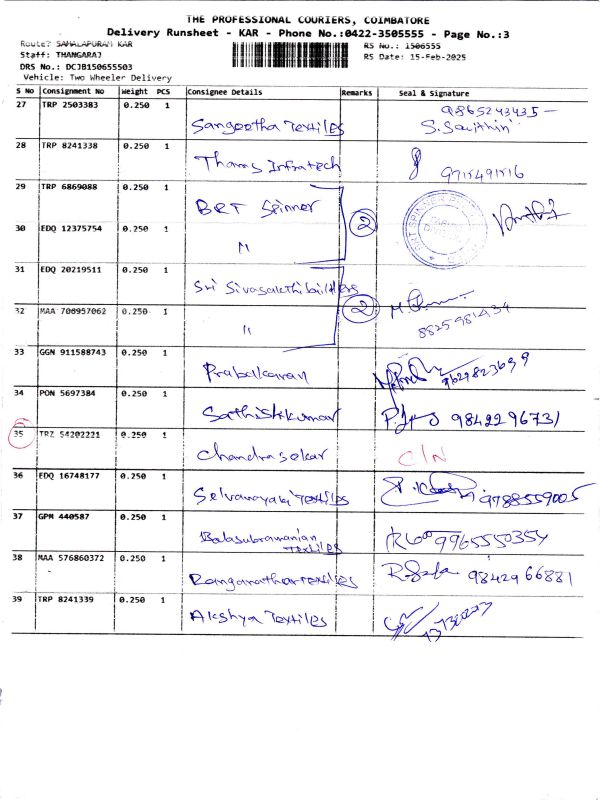 THE PROFESSIONAL COURIERS, COIMBATORE
Delivery Runsheet - KAR - Phone No.:0422-3505555 - Page No.:3
Route? SAMALAPURAM KAR
RS No.: 1506555
Staff: THANGARAJ
RS Date: 15-Feb-2025
DRS No.: DCJB150655503
Vehicle: Two Wheeler Delivery
S No Consignment No Weight PCS Consignee Details Remarks Seal & Signature
27 TRP 2503383 0.250 1 Sangeetha Textiles 9865243435
28 TRP 8241338 0.250 1 Thams Infratech
29 TRP 6869088 0.250 1 BRT Spinner 2
30 EDQ 12375754 0.250 1 "
31 EDQ 20219511 0.250 1 Sri Sivasakthi builders 2
32 MAA 706957062 0.250 1 "
33 GGN 911588743 0.250 1 Prabakaran 9629823699
34 PON 5697384 0.250 1 Sathishkumar 9842296731
35 TRZ 54202221 0.250 1 Chandrasekar C/N
36 EDQ 16748177 0.250 1 Selvanayaki Textiles 9788559005
37 GPM 440587 0.250 1 Balasubramanian Textiles 9965550354
38 MAA 576860372 0.250 1 Ranganathar Textiles 9842966881
39 TRP 8241339 0.250 1 Akshya Textiles